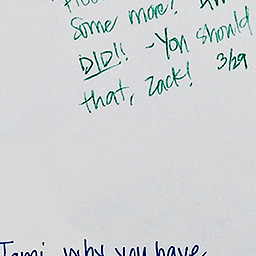 Some more!
DID!! - You should
that, Zack! 3/29
Jami, why you have